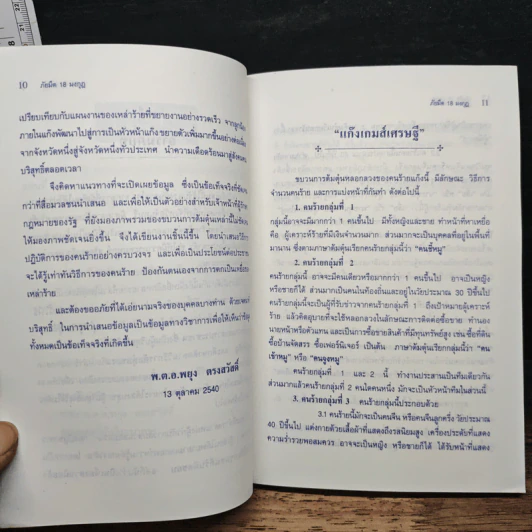 10 ภัยมืด 18 มงกุฎ
เปรียบเทียบกับแผนงานของเหล่าร้ายที่ขยายงานอย่างรวดเร็ว จากลูกน้อง
ภายในแก๊งพัฒนาไปสู่การเป็นหัวหน้าแก๊ง ขยายตัวเพิ่มมากขึ้นอย่างต่อเนื่อง
จากจังหวัดหนึ่งสู่จังหวัดหนึ่งทั่วประเทศ นำความเดือดร้อนมาสู่สังคม
บริสุทธิ์ตลอดเวลา
จึงคิดหาแนวทางที่จะเปิดเผยข้อมูล ซึ่งเป็นข้อเท็จจริงที่
กว่าที่สื่อมวลชนนำเสนอ และเพื่อให้เป็นตัวอย่างสำหรับเจ้าหน้าที่ผู้
กฎหมายของรัฐ ที่ยังมองภาพรวมของขบวนการต้มตุ๋นเหล่านี้ไม่
ให้มองภาพชัดเจนยิ่งขึ้น จึงได้เขียนงานชิ้นนี้ขึ้น โดยนำเสนอวิธี
ปฏิบัติการของคนร้ายอย่างครบวงจร และเพื่อเป็นประโยชน์ต่อประชา
จะได้รู้เท่าทันวิธีการของคนร้าย ป้องกันตนเองจากการตกเป็นเหยื่อ
เหล่าร้าย
และต้องขออภัยที่ได้เอ่ยนามจริงของบุคคลบางท่าน ด้วยเจตนา
บริสุทธิ์ ในการนำเสนอข้อมูลเป็นข้อมูลทางวิชาการเพื่อให้เห็นว่า
ทั้งหมดเป็นข้อเท็จจริงที่เกิดขึ้น
พ.ต.อ.พยุง ตรงสวัสดิ์
13 ตุลาคม 2540
ภัยมืด 18 มงกุฎ 11
"แก๊งเกมส์เศรษฐี"
ขบวนการต้มตุ๋นหลอกลวงของคนร้ายแก๊งนี้ มีลักษณะ วิธีการ
จำนวนคนร้าย และการแบ่งหน้าที่กันทำ ดังต่อไปนี้
1. คนร้ายกลุ่มที่ 1
กลุ่มนี้อาจจะมีมากกว่า 1 คนขึ้นไป มีทั้งหญิงและชาย ทำหน้าที่หาเหยื่อ
คือ ผู้เคราะห์ร้ายที่มีเงินจำนวนมาก ส่วนมากจะเป็นบุคคลที่อยู่ในพื้นที่มา
นาน ซึ่งตามภาษาต้มตุ๋นเรียกคนร้ายกลุ่มนี้ว่า "คนชี้หมู"
2. คนร้ายกลุ่มที่ 2
คนร้ายกลุ่มนี้ อาจจะมีคนเดียวหรือมากกว่า 1 คนขึ้นไป อาจเป็นหญิง
หรือชายก็ได้ ส่วนมากเป็นคนในท้องถิ่นและอยู่ในวัยประมาณ 30 ปีขึ้นไป
คนร้ายกลุ่มนี้จะเป็นผู้ที่รับข่าวจากคนร้ายกลุ่มที่ 1 ถึงเป้าหมายผู้เคราะห์
ร้าย แล้วคิดอุบายที่จะใช้หลอกลวงในลักษณะการติดต่อซื้อขาย ทำนอง
นายหน้าหรือตัวแทน และเป็นการซื้อขายสินค้าที่มีทุนทรัพย์สูง เช่น ซื้อที่ดิน
ซื้อบ้านจัดสรร ซื้อเฟอร์นิเจอร์ เป็นต้น ภาษาต้มตุ๋นเรียกกลุ่มนี้ว่า "คน
เข้าหมู" หรือ "คนจูงหมู"
คนร้ายกลุ่มที่ 1 และ 2 นี้ ทำงานประสานเป็นทีมเดียวกัน
ส่วนมากแล้วคนร้ายกลุ่มที่ 2 คนใดคนหนึ่ง มักจะเป็นหัวหน้าทีมในส่วนนี้
3. คนร้ายกลุ่มที่ 3 คนร้ายกลุ่มนี้ประกอบด้วย
3.1 คนร้ายนี้มักจะเป็นคนจีน หรือคนจีนลูกครึ่ง วัยประมาณ
40 ปีขึ้นไป แต่งกายด้วยเสื้อผ้าที่แสดงถึงรสนิยมสูง เครื่องประดับที่แสดง
ความร่ำรวยพอสมควร อาจจะเป็นหญิง หรือชายก็ได้ ได้รับหน้าที่แสดง